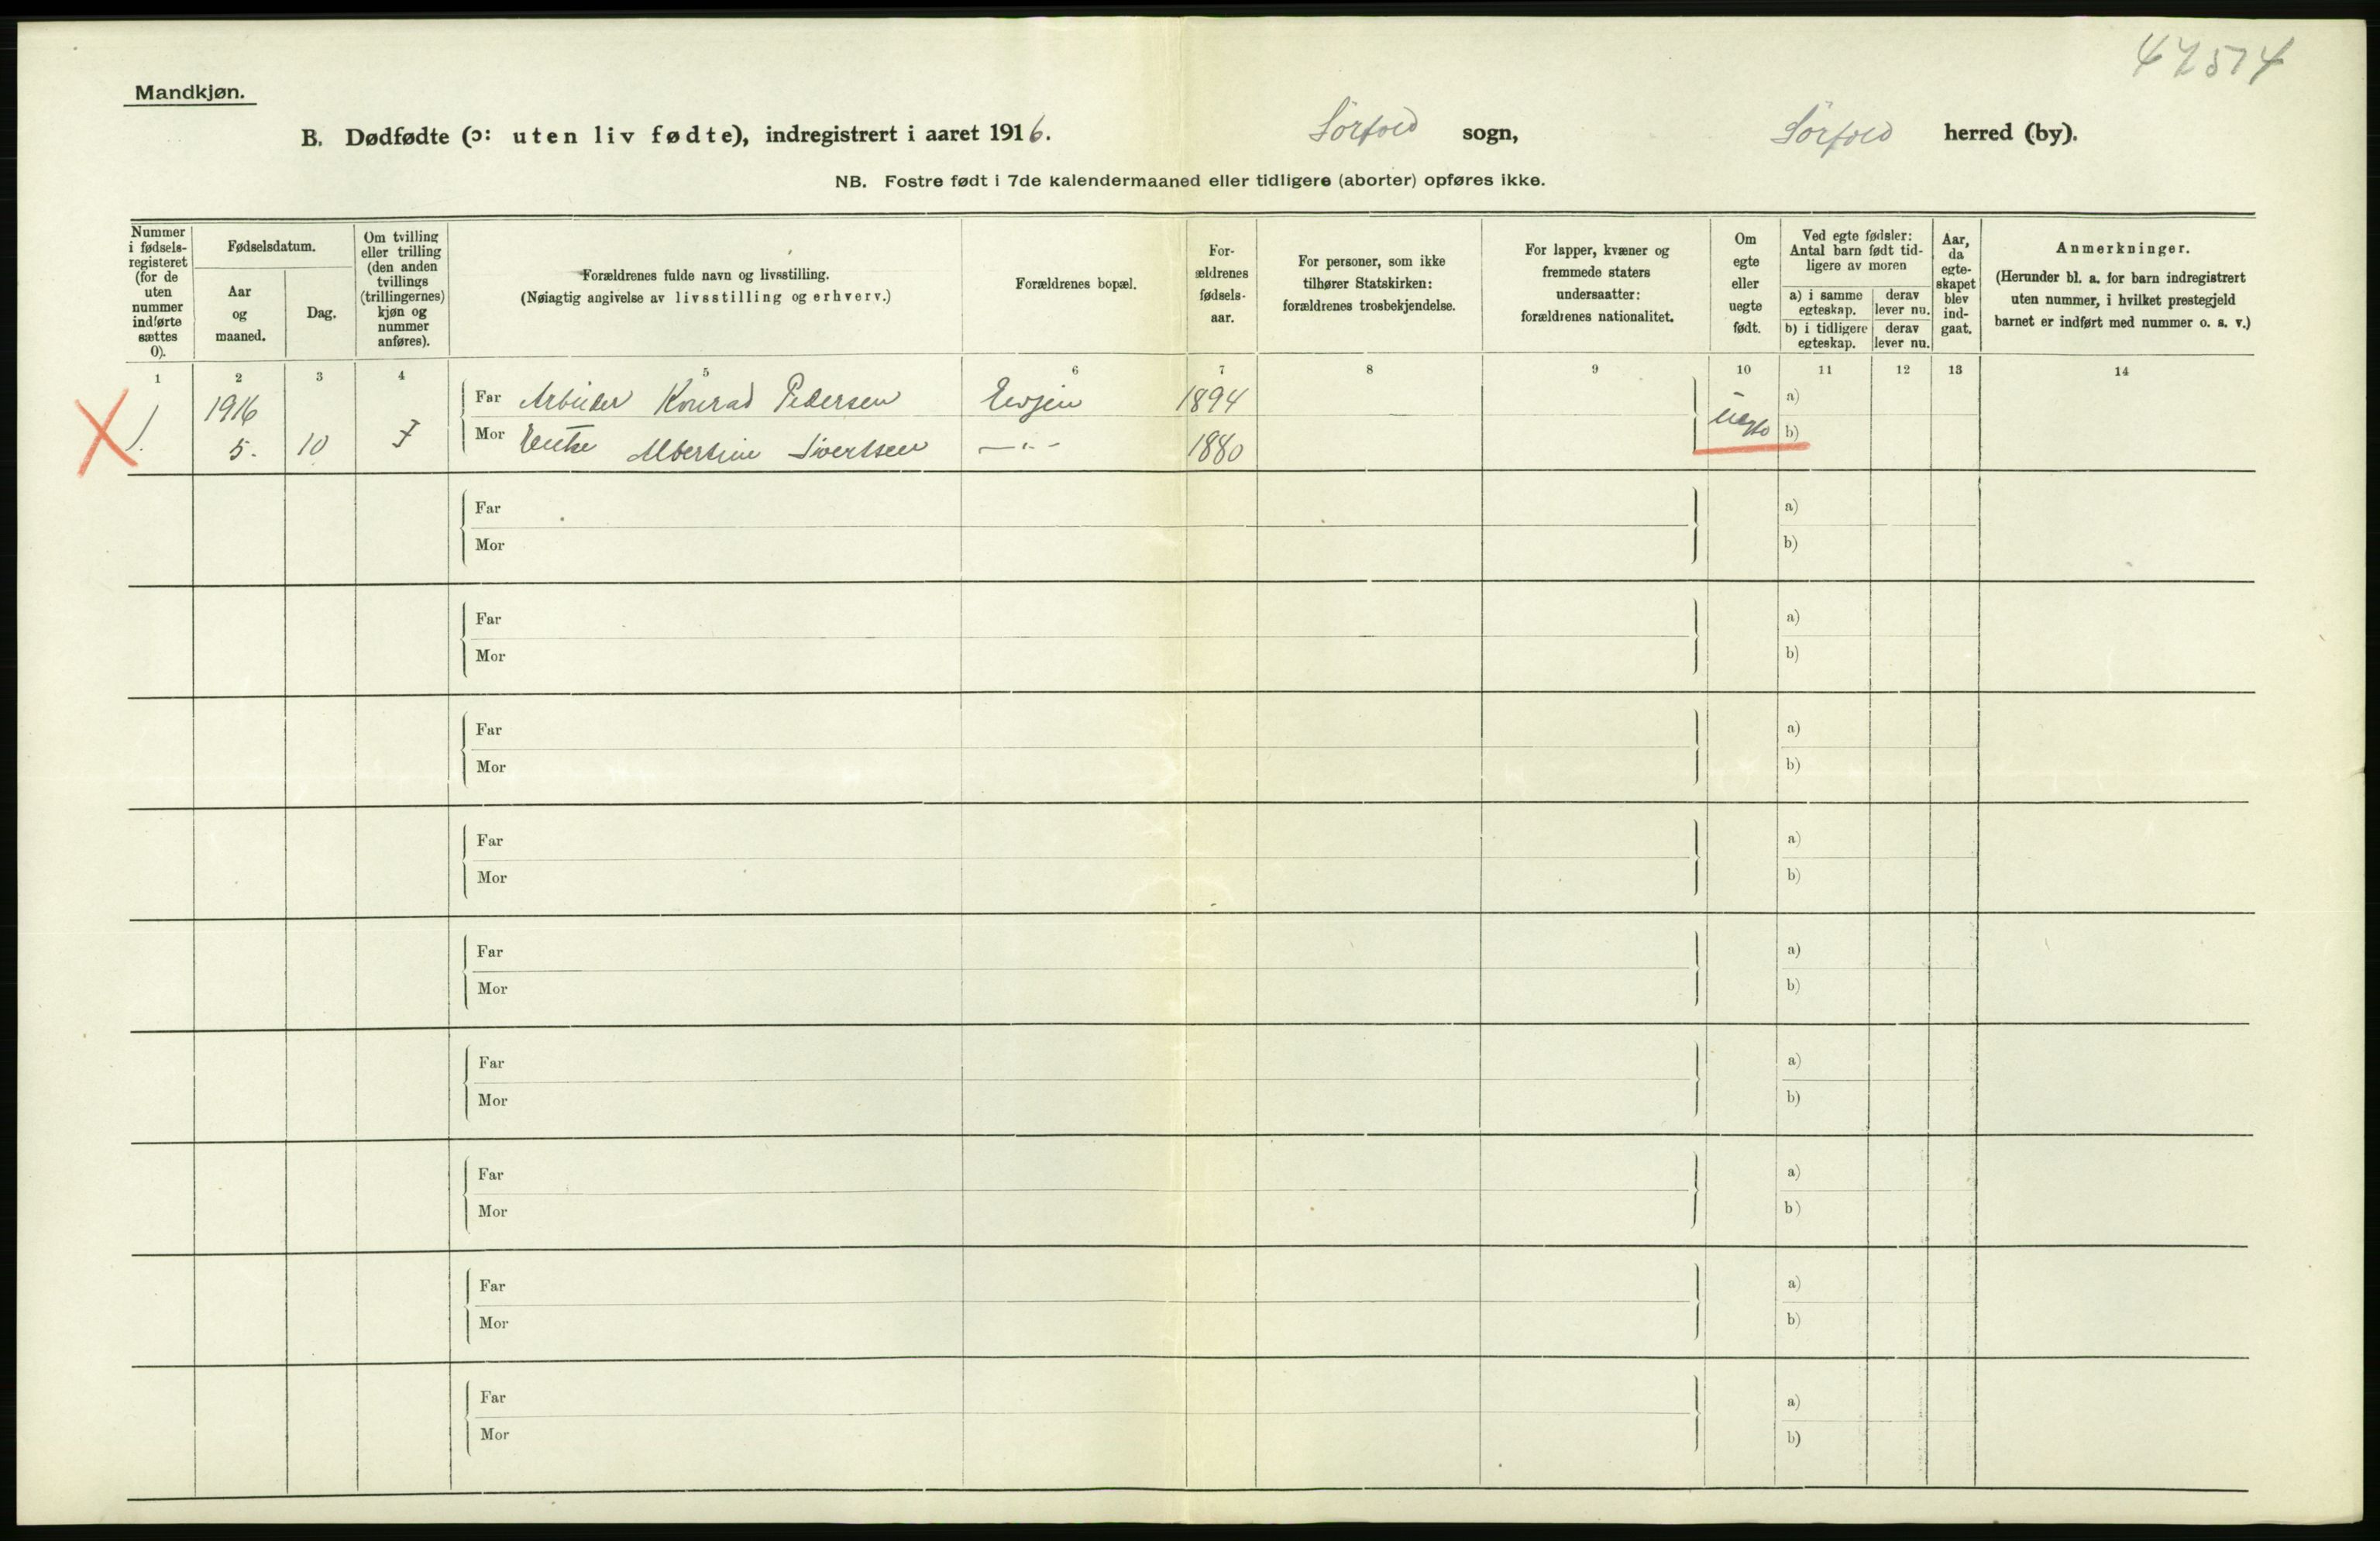 47574
Mandkjøn.
B. Dødfødte (ɔ: uten liv fødte), indregistrert i aaret 1916. Sörfold sogn, Sörfold herred (by).
NB. Fostre født i 7de kalendermaaned eller tidligere (aborter) opføres ikke.
Nummer i fødsels-registeret (for de uten nummer indførte sættes 0).
Fødselsdatum.
Aar og maaned.
Dag.
Om tvilling eller trilling (den anden tvillings (trillingernes) kjøn og nummer anføres).
Forældrenes fulde navn og livsstilling.
(Nøiagtig angivelse av livsstilling og erhverv.)
Forældrenes bopæl.
For-ældrenes fødsels-aar.
For personer, som ikke tilhører Statskirken: forældrenes trosbekjendelse.
For lapper, kvæner og fremmede staters undersaatter: forældrenes nationalitet.
Om egte eller uegte født.
Ved egte fødsler: Antal barn født tid-ligere av moren
a) i samme egteskap. derav lever nu.
b) i tidligere egteskap. derav lever nu.
Aar, da egte-skapet blev ind-gaat.
Anmerkninger.
(Herunder bl. a. for barn indregistrert uten nummer, i hvilket prestegjeld barnet er indført med nummer o. s. v.)
1 2 3 4 5 6 7 8 9 10 11 12 13 14
1916 Far Arbeider Konrad Pedersen Evjen 1894 a)
1. 5. 10 Mor Enke Albertine Sivertsen —"— 1880 uegte b)
Far a)
Mor b)
Far a)
Mor b)
Far a)
Mor b)
Far a)
Mor b)
Far a)
Mor b)
Far a)
Mor b)
Far a)
Mor b)
Far a)
Mor b)
Far a)
Mor b)